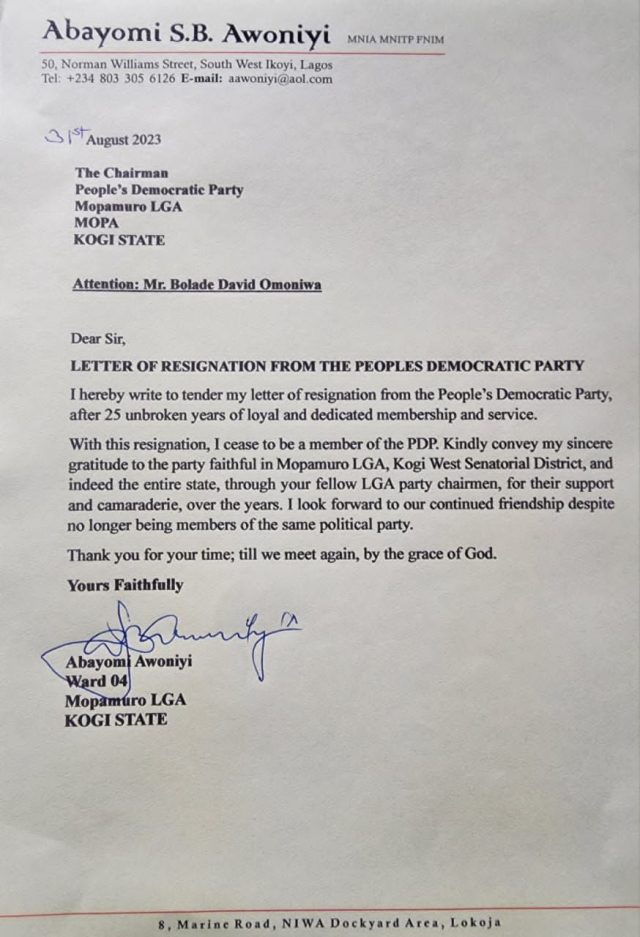 Abayomi S.B. Awoniyi MNIA MNITP FNIM
50, Norman Williams Street, South West Ikoyi, Lagos
Tel: +234 803 305 6126 E-mail: aawoniyi@aol.com
31st August 2023
The Chairman
People's Democratic Party
Mopamuro LGA
MOPA
KOGI STATE
Attention: Mr. Bolade David Omoniwa
Dear Sir,
LETTER OF RESIGNATION FROM THE PEOPLES DEMOCRATIC PARTY
I hereby write to tender my letter of resignation from the People's Democratic Party,
after 25 unbroken years of loyal and dedicated membership and service.
With this resignation, I cease to be a member of the PDP. Kindly convey my sincere
gratitude to the party faithful in Mopamuro LGA, Kogi West Senatorial District, and
indeed the entire state, through your fellow LGA party chairmen, for their support
and camaraderie, over the years. I look forward to our continued friendship despite
no longer being members of the same political party.
Thank you for your time; till we meet again, by the grace of God.
Yours Faithfully
Abayomi Awoniyi
Ward 04
Mopamuro LGA
KOGI STATE
8, Marine Road, NIWA Dockyard Area, Lokoja